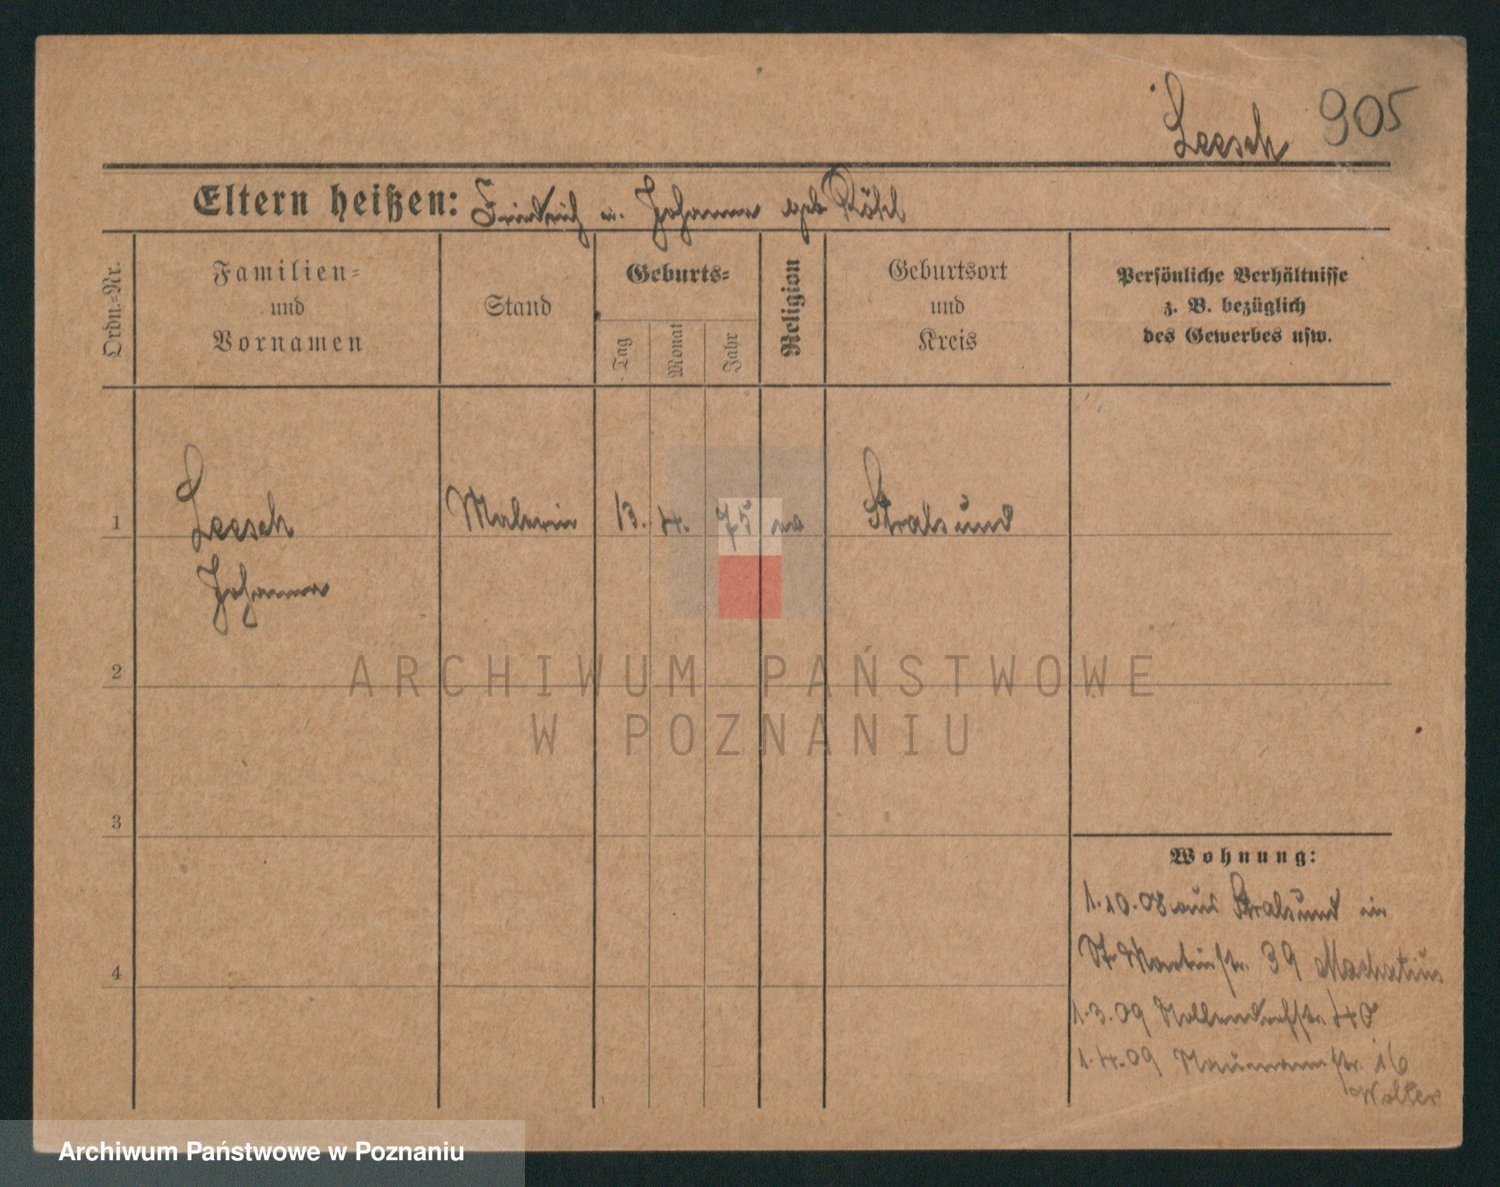 Leesch 905
Eltern heißen: Friedrich u. Johanna geb Röhl
Ordn.-Nr.
Familien-
und
Vornamen
Stand
Geburts-
Tag
Monat
Jahr
Religion
Geburtsort
und
Kreis
Persönliche Verhältnisse
z. B. bezüglich
des Gewerbes usw.
1 Leesch Malerin 13. 4. 75 ev Stralsund
Johanna
2
ARCHIWUM PAŃSTWOWE
W POZNANIU
3
Wohnung:
1.10.08 aus Stralsund in
St Martinstr. 39
4
1.3.09 Nollendorfstr 40
1.4.09 Naumannstr. 16
Wolter
Archiwum Państwowe w Poznaniu